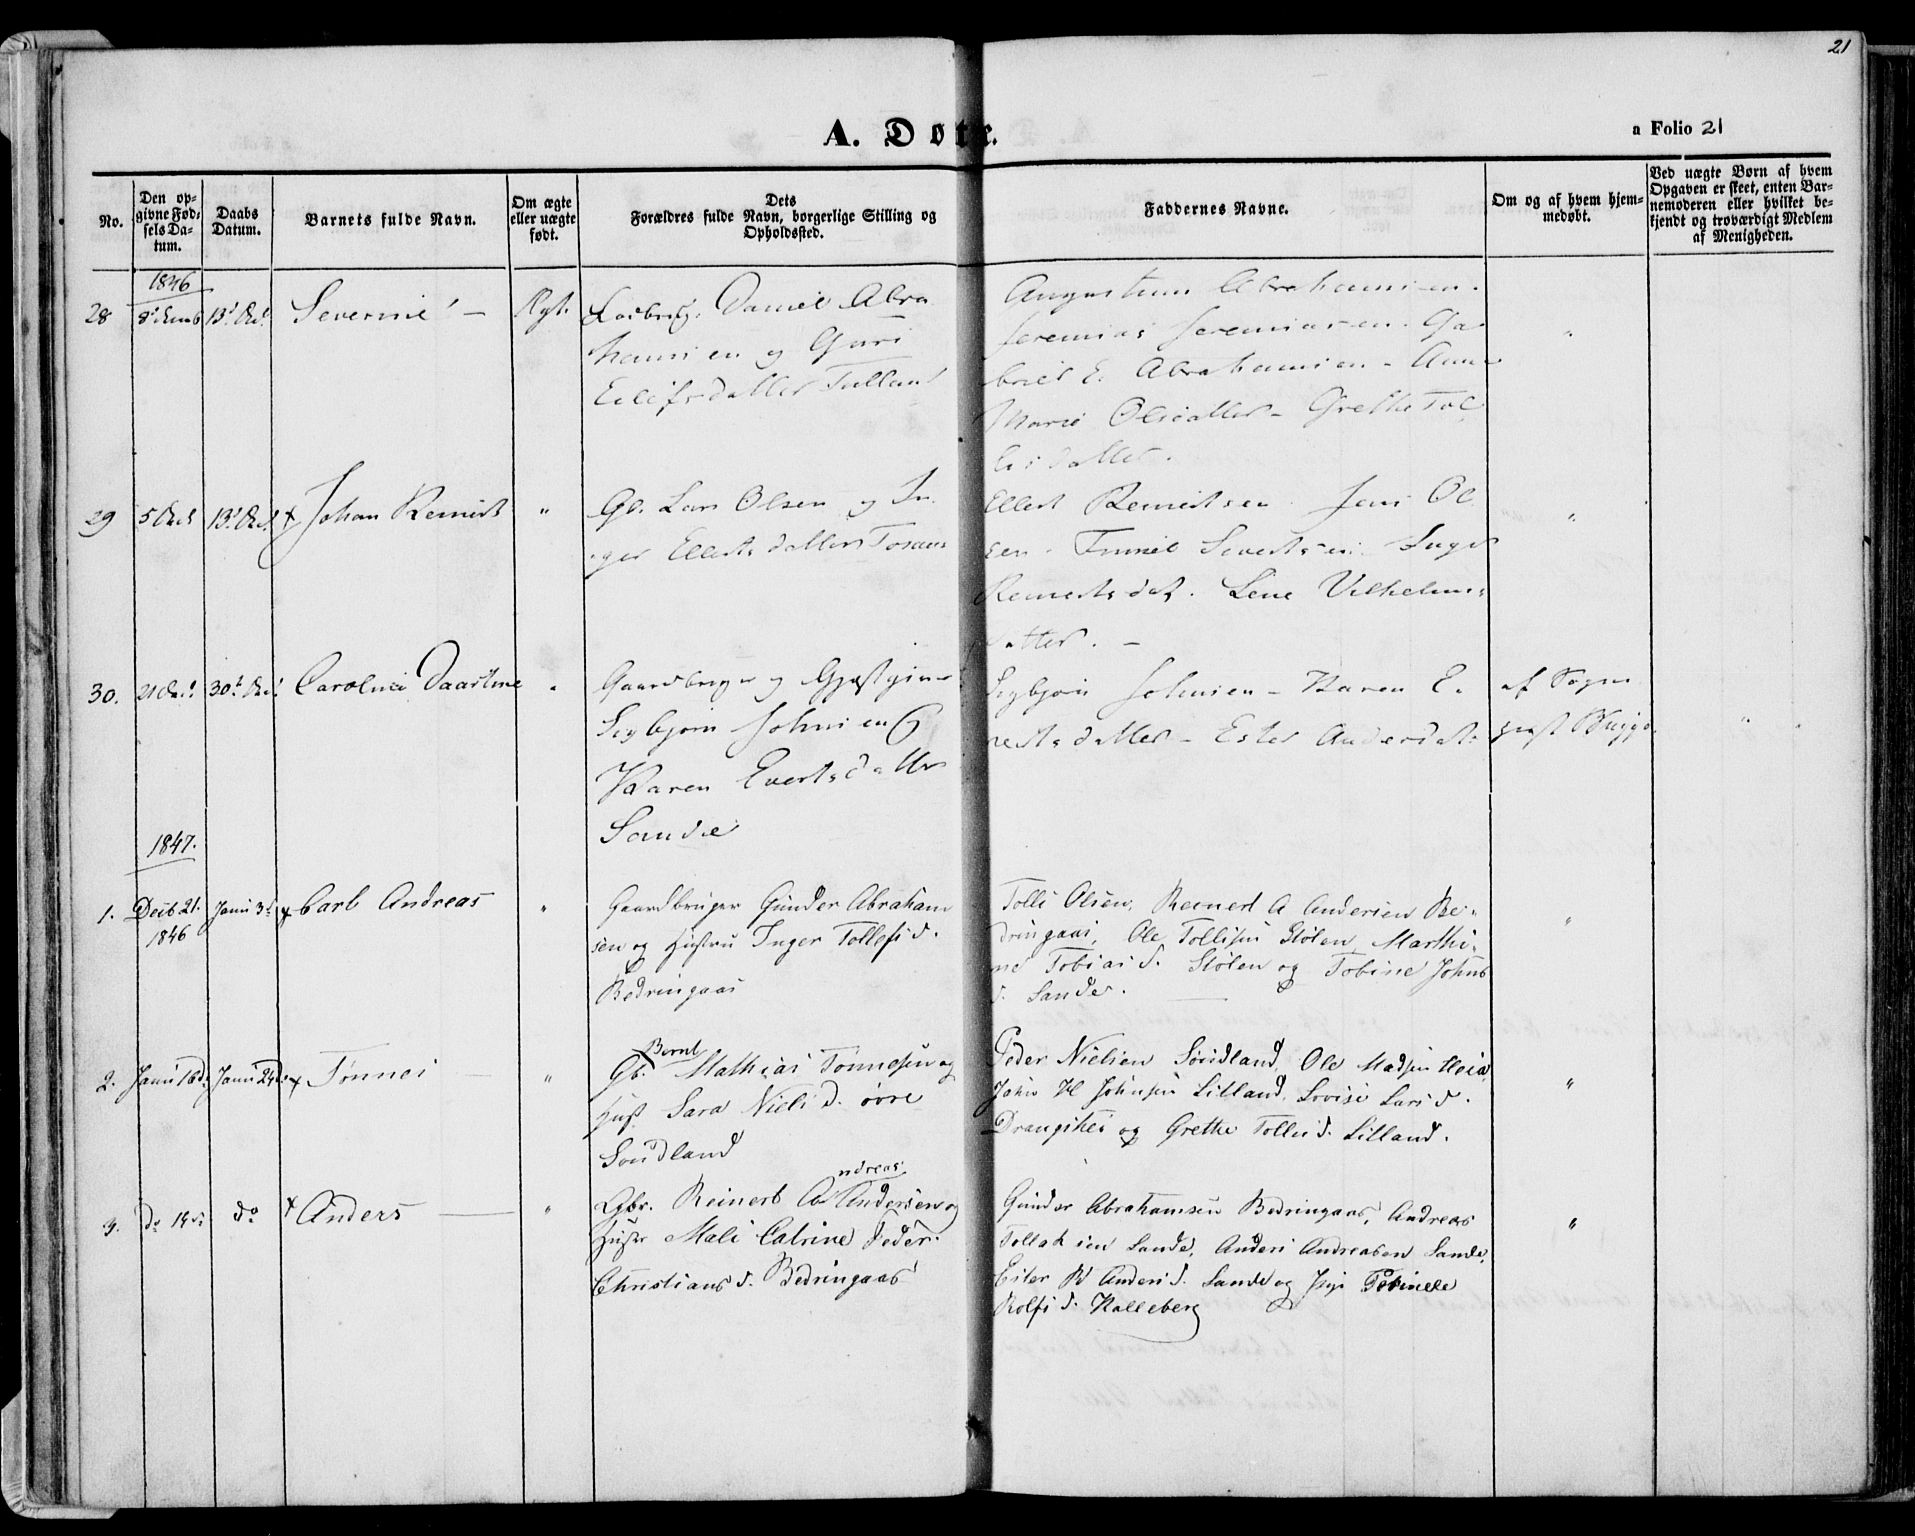 21
A. Døbte.
a Folio 21
No.
Den op-
givne Fød-
sels Da-
tum.
Daabs
Datum.
Barnets fulde Navn.
Om ægte
eller uægte
født.
Dets
Forældres fulde Navn, borgerlige Stilling og
Opholdssted.
Faddernes Navne.
Om og af hvem hjem-
medøbt.
Ved uægte Børn af hvem
Opgaven er skeet, enten Bar-
nemoderen eller hvilket be-
kjendt og troværdigt Medlem
af Menigheden.
1846
28 13 Severine -
Daniel Abra
hamsen og Guri
Eilifsdatter
Abrahamsen.
Jeremias Jeremiasen. Ga-
briel E. Abrahamsen - Anne
Marie Olsdatter - Grethe Tol
lisdatter.
29 5 13 x Johan Reinert "
Gb. Lars Olsen og In
ger Ellertsdatter
Ellert Reinertsen Jens Ol
sen - Severtsen. Inger
Reinertsdat. Lene Vilhelms
datter. -
30. 21 30 Caroline "
Gaardbruger og Gjæstgiver
Sigbjørn Johnsen og
Karen Evertsdatter
Sande
Sigbjørn Johnsen - Karen E.
vertsdatter - Ester Andersdat.
af Sogne
præst
1847.
1. Decb 21.
1846
Janu 3 x Carl Andreas "
Gaardbruger Gunder Abraham
sen og Hustru Inger Tollefsd.
Bedringaas
Tolli Olsen, Reinert A Andersen Be-
dringaas, Ole Tollisen Stølen, Marthi-
ne Tobiasd. Stølen og Tobine Johns
d. Sande.
2. Janu 16d. Janu 24d. x Tønnes "
Bernt
Gb. Mathias Tønnesen og
Hust. Sara Nielsd. øvre
Sordland
Peder Nielsen Sordland, Ole Madsen Heia,
John H Johnsen Lilland, Lovise Larsd.
Drangshei og Grethe Tollisd. Lilland.
3. do 14 do x Anders "
ndreas
Gbr. Reinert A Andersen og
Hustr Mali Catrine Peder
Christians d. Bedringaas
Gunder Abrahamsen Bedringaas, Andreas
Tollaksen Sande, Anders Andreasen Sande,
Ester B Andersd. Sande og Pige Tobine
Rolfsd. Kalleberg